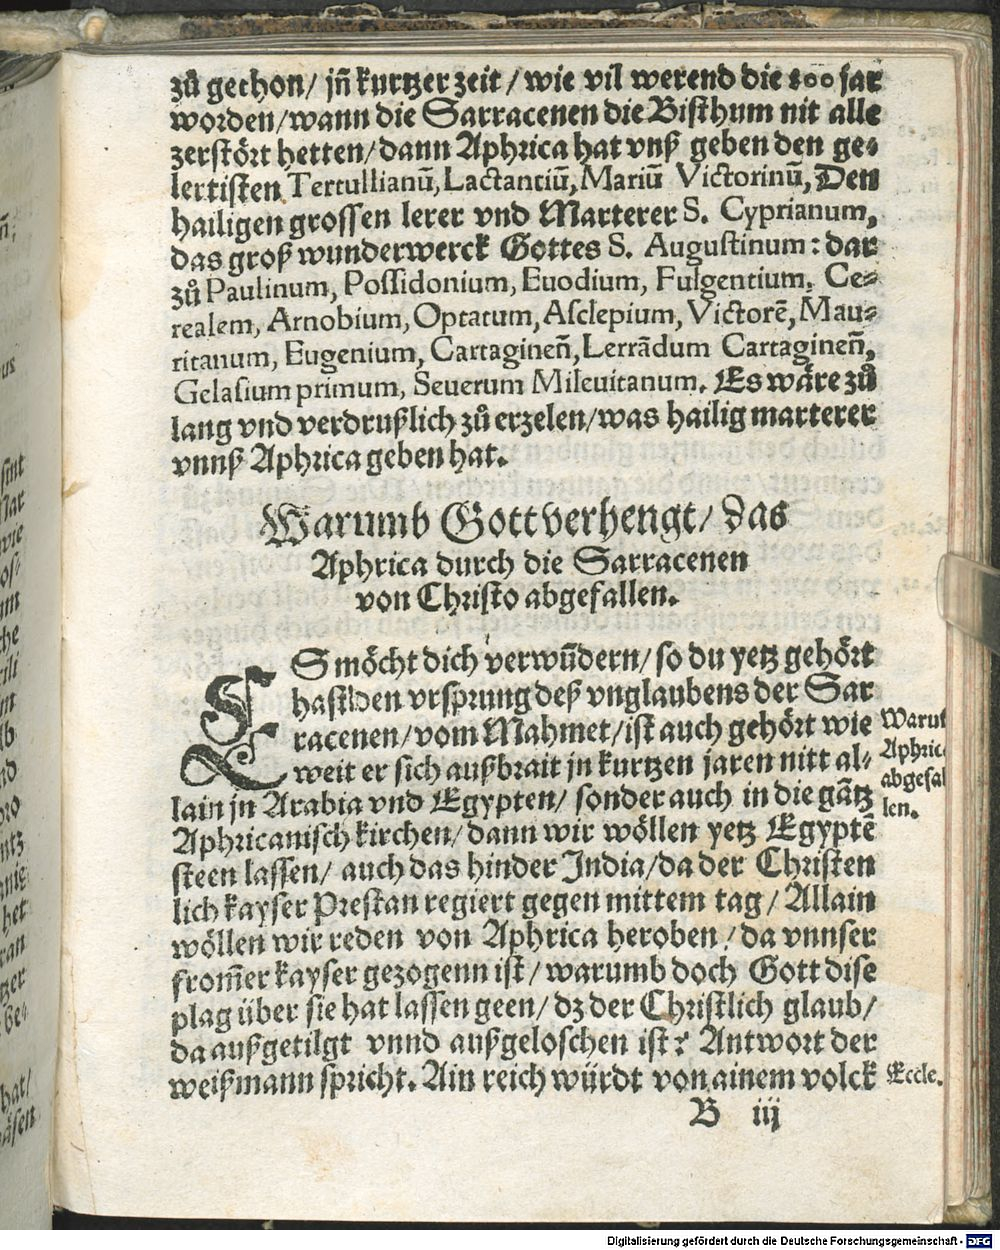 zů gethon/ jñ kurtzer zeit / wie vil werend die 800 jar
worden/wann die Sarracenen die Bisthum nit alle
zerstört hetten/dann Aphrica hat vnß geben den ge⸗
lertisten Tertullianū, Lactantiū, Mariū Victorinū, Den
hailigen grossen lerer vnd Marterer S. Cyprianum,
das groß wunderwerck Gottes S. Augustinum: dar
zů Paulinum, Possidonium, Euodium, Fulgentium, Ce⸗
realem, Arnobium, Optatum, Asclepium, Victorē, Mau⸗
ritanum, Eugenium, Cartagineñ, Lerrādum Cartagineñ,
Gelasium primum, Seuerum Mileuitanum. Es wäre zů
lang vnd verdrußlich zů erzelen/was hailig marterer
vnnß Aphrica geben hat.
Warumb Gott verhengt/ das
Aphrica durch die Sarracenen
von Christo abgefallen.
ES möcht dich verwūdern/ so du yetz gehört
hast den vrsprung deß vnglaubens der Sar
racenen/vom Mahmet/ist auch gehört wie
weit er sich außbrait jn kurtzen jaren nitt al⸗
lain jn Arabia vnd Egypten/ sonder auch in die gātz
Aphricanisch kirchen/dann wir wöllen yetz Egyptē
steen lassen/ auch das hinder India/da der Christen
lich kayser Prestan regiert gegen mittem tag/ Allain
wöllen wir reden von Aphrica heroben/da vnnser
from̄er kayser gezogenn ist/ warumb doch Gott dise
plag über sie hat lassen geen/ dz der Christlich glaub/
da außgetilgt vnnd außgeloschen ist? Antwort der
weißmann spricht. Ain reich würdt von ainem volck
Waruł
Aphric
abgefal
len.
Eccle.
B iij
Digitalisierung gefördert durch die Deutsche Forschungsgemeinschaft - DFG